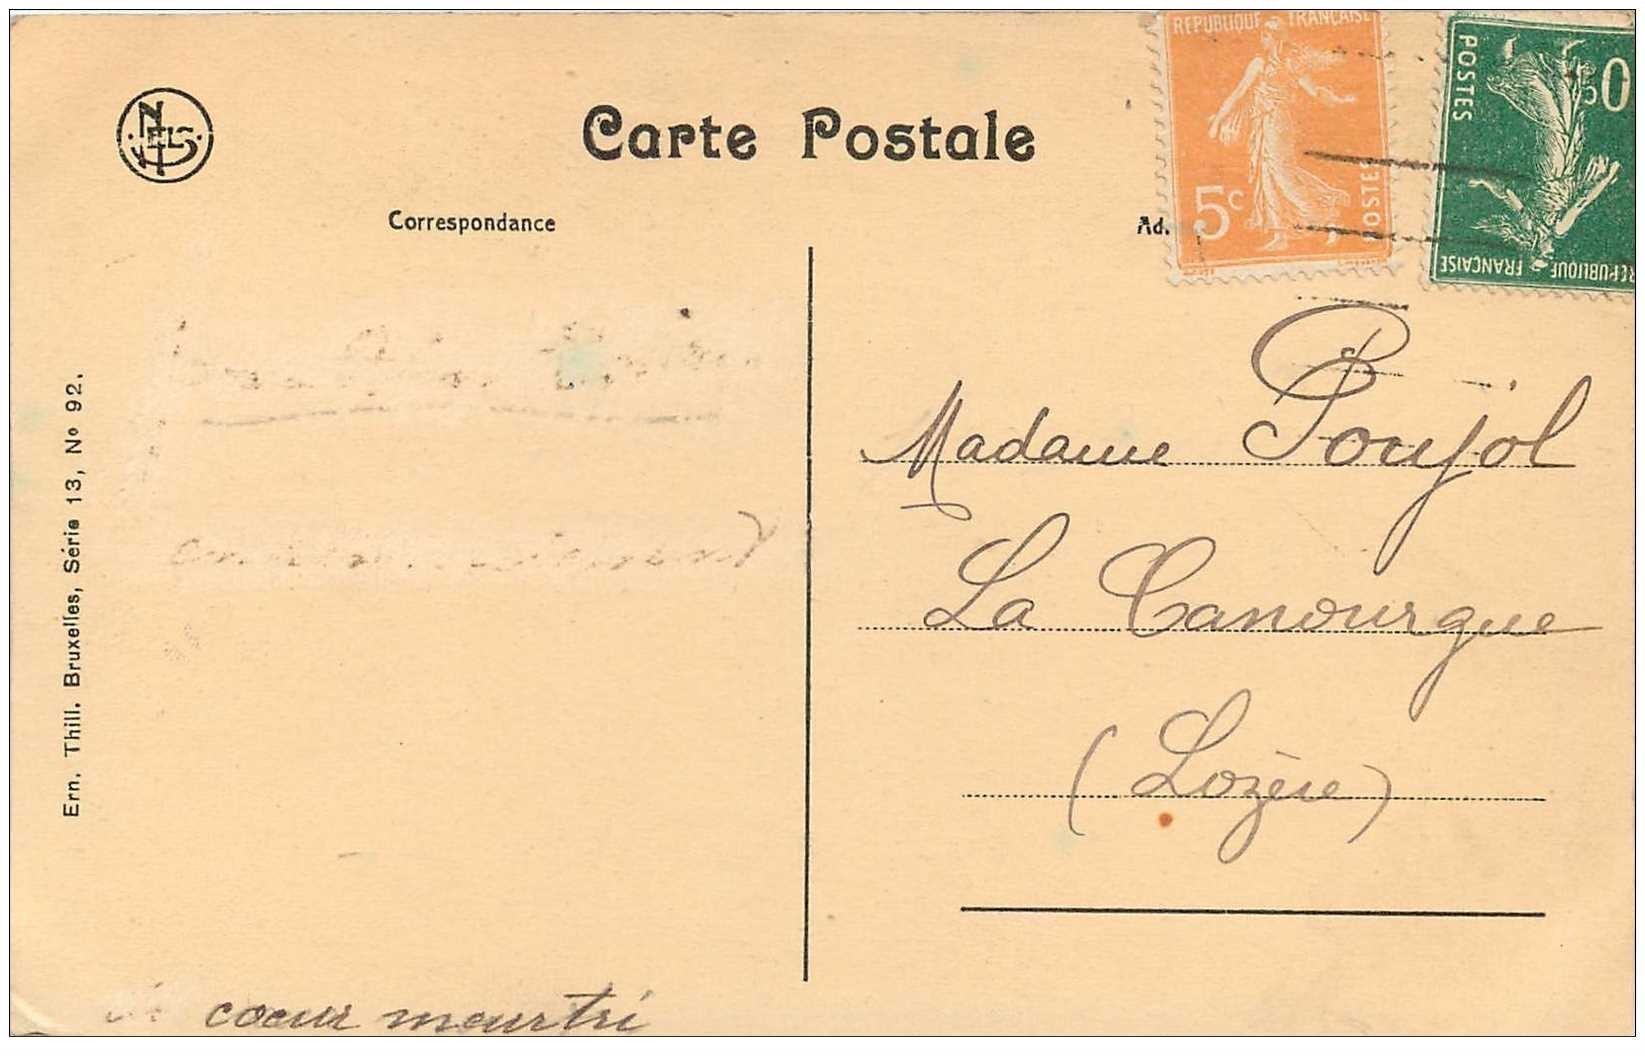 NELS
Carte Postale
Correspondance
Ad.
REPUBLIQUE FRANÇAISE
5c
POSTES
POSTES
REPUBLIQUE FRANÇAISE
Ern. Thill. Bruxelles, Série 13, No 92.
Madame Poujol
La Canourgue
(Lozère)
coeur meurtri